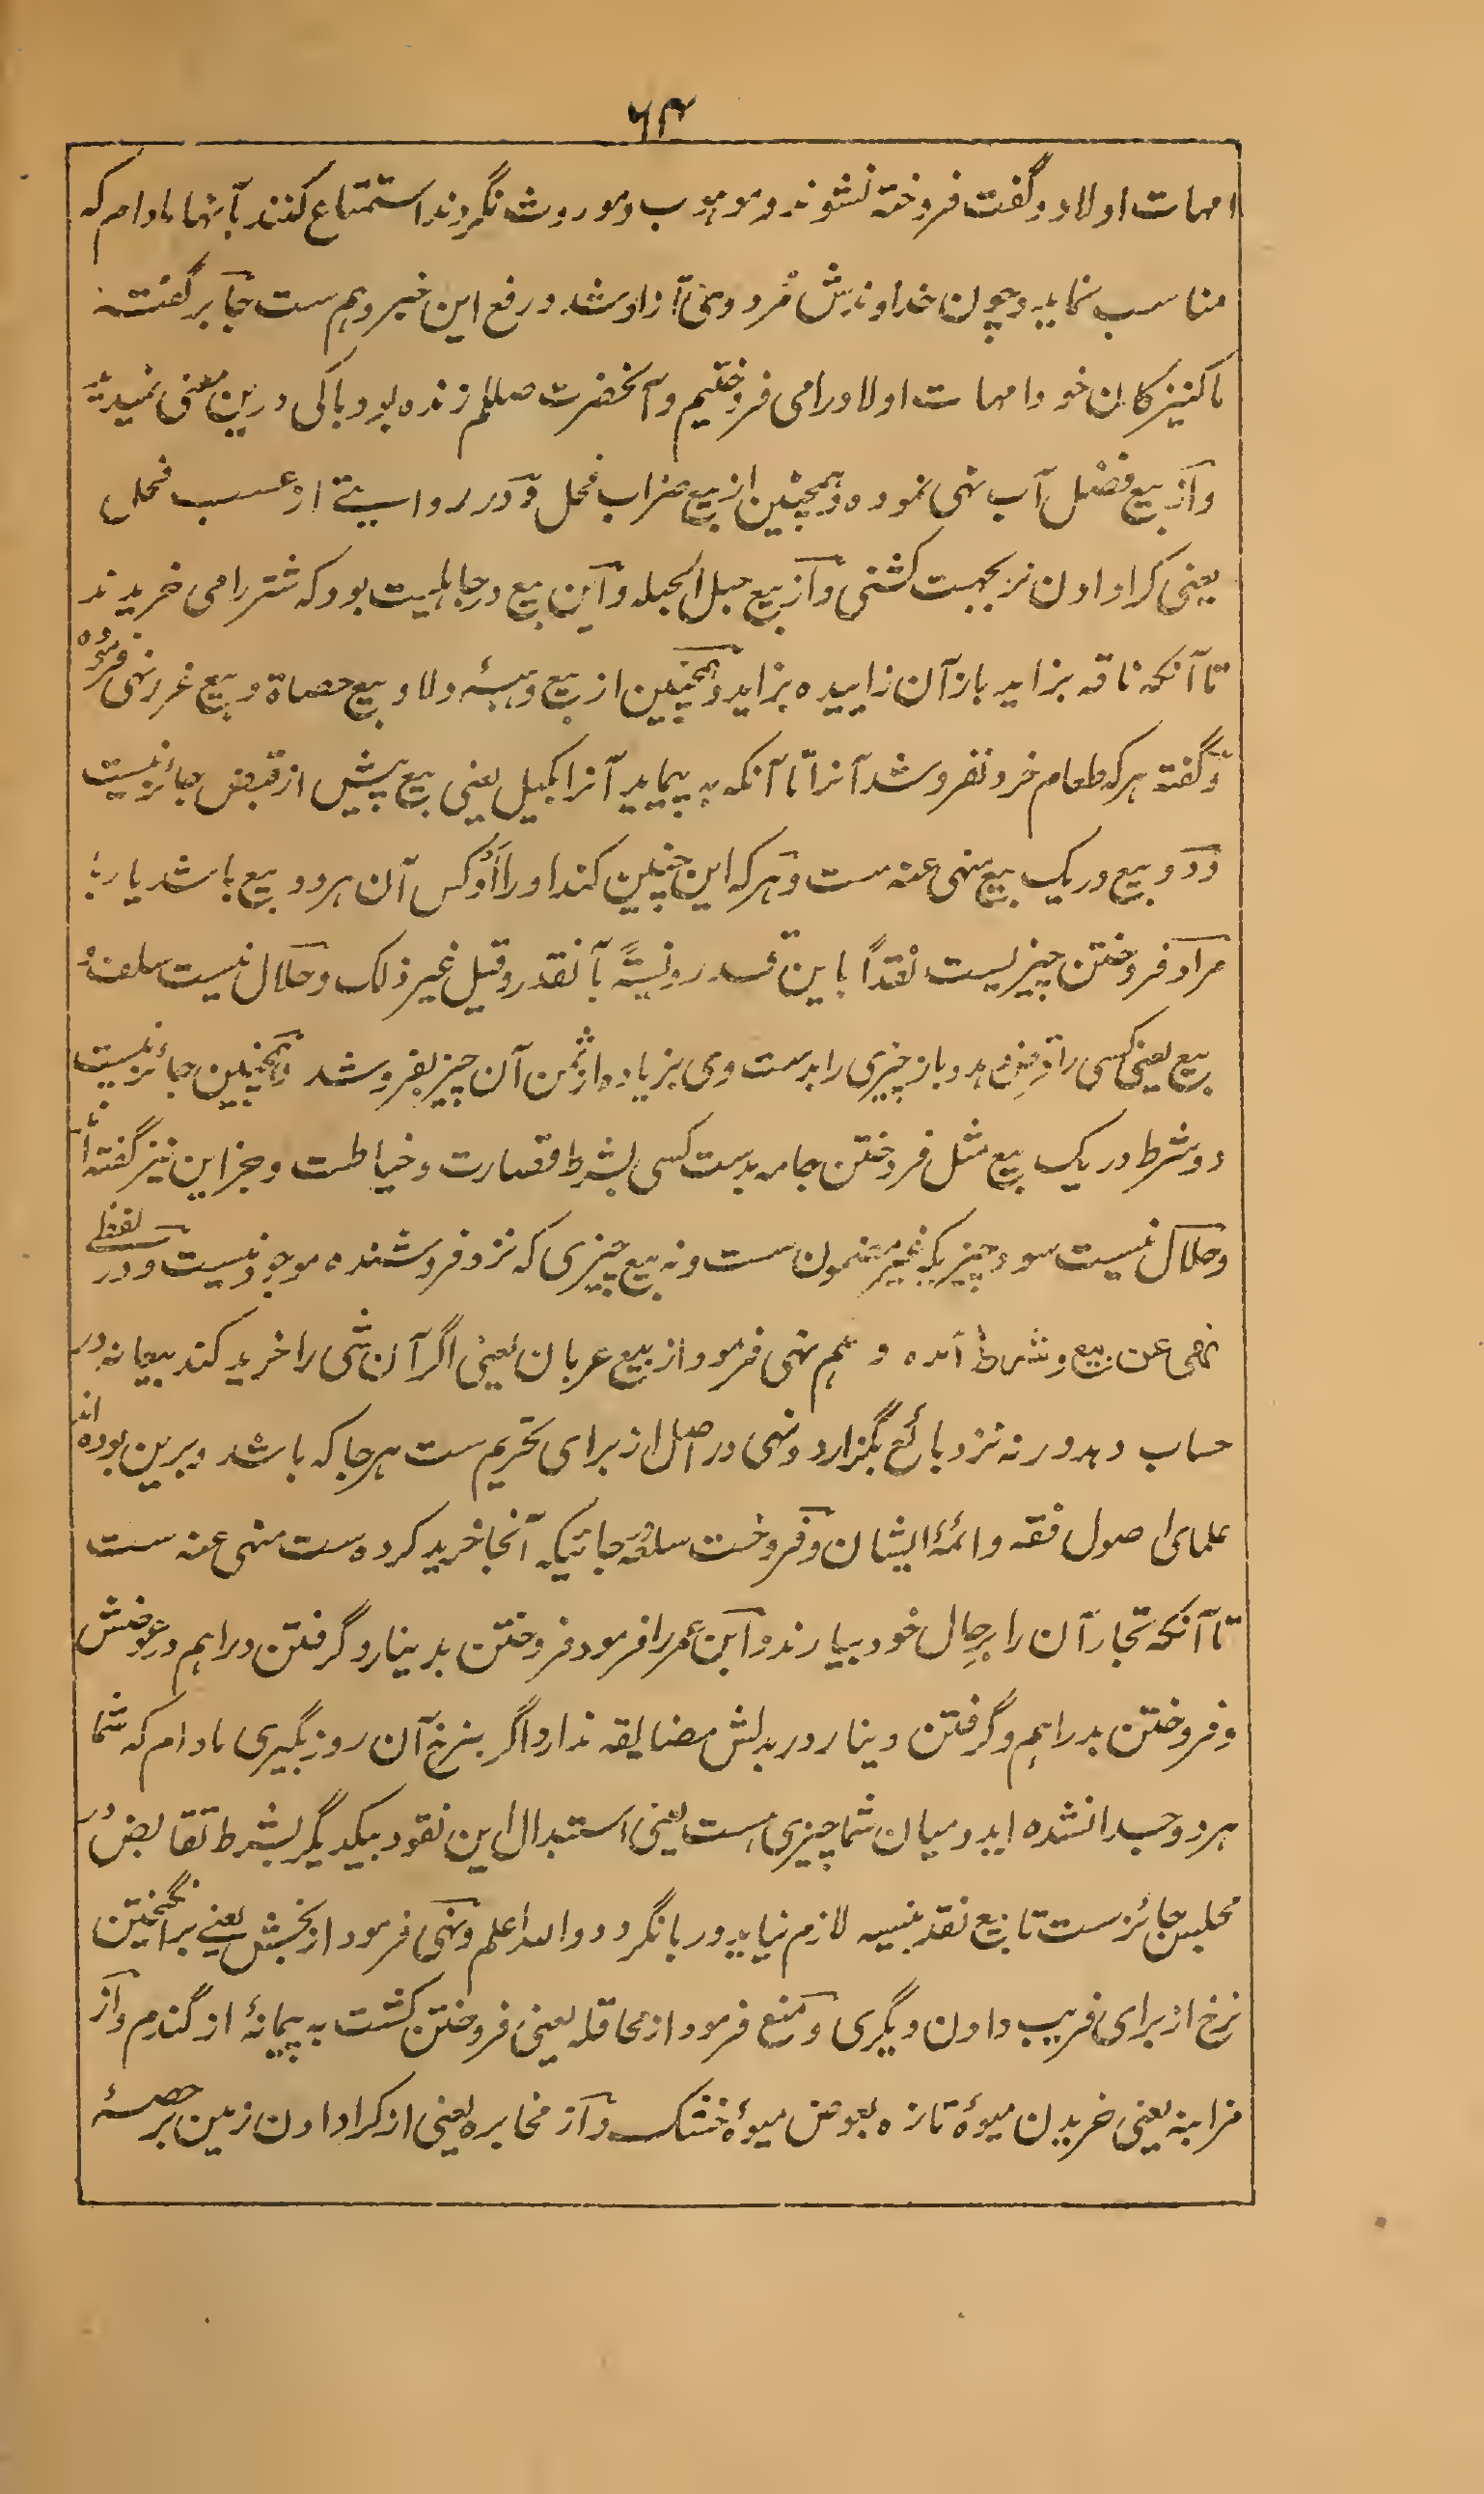 ۶۴
امهات اولاد و گفت فروخته نشوند و موهوب و موروث نگردند استمتاع کنند بآنها مادام که
مناسب نماید و چون خداوندش مُرد وی آزاد شد و رفع این خبر وهم ست جابر گفته
ما کنیزکان خود امهات اولاد را می فروختیم و آنحضرت صللم زنده بود باکی درین معنی نمیدید
و از بیع فضل آب نهی نموده و همچنین از بیع ضراب فحل و در روایتے از عسب فحل
یعنی کرا دادن نر بجهت کشنی و از بیع حبل الحبله و این بیع در جاهلیت بود که شتر را می خریدند
تا آنکه ناقه بزاید باز آن زاییده بزاید و همچنین از بیع و هبهٔ ولا و بیع حصاة و بیع غرر نهی فرموده
و گفته هر که طعام خرد نفروشد آنرا تا آنکه به پیماید آنرا بکیل یعنی بیع پیش از قبض جائز نیست
و دو بیع در یک بیع منهی عنه ست و هر که این چنین کند او را اَوْکس آن هر دو بیع باشد یا ربا
مراد فروختن چیزیست نقداً باین قدر و نسیئةً بآنقدر و قیل غیر ذلک و حلال نیست سلف و
بیع یعنی کسی را قرض دهد و باز چیزی را بدست وی بزیاده از ثمن آن چیز بفروشد و همچنین جائز نیست
دو شرط در یک بیع مثل فروختن جامه بدست کسی بشرط قصارت و خیاطت و جز این نیز گفته اند
و حلال نیست سود چیزیکه غیر مضمون ست و نه بیع چیزی که نزد فروشنده موجود نیست و در لفظے
نهی عن بیع و شرط آمده و هم نهی فرمود از بیع عربان یعنی اگر آن شی را خرید کند بیعانه در
حساب دهد ورنه نزد بائع بگزارد و نهی در اصل از برای تحریم ست هر جا که باشد و برین بوده اند
علمای اصول فقه و ائمهٔ ایشان و فروخت سلعه در جائیکه آنجا خرید کرده ست منهی عنه ست
تا آنکه تجار آن را برحال خود بیارند و ابن عمر را فرمود فروختن بدینار و گرفتن دراهم در عوضش
و فروختن بدراهم و گرفتن دینار در بدلش مضایقه ندارد اگر بنرخ آن روز بگیری مادام که شما
هر دو جدا نشده اید و میان شما چیزی ست یعنی استبدال این نقود بیکدیگر بشرط تقابض در
مجلس جائز ست تا بیع نقد بنسیه لازم نیاید و ربا نگردد والله اعلم و نهی فرمود از نجش یعنے برانگیختن
نرخ از برای فریب دادن دیگری و منع فرمود از محاقله یعنی فروختن کشت به پیمانهٔ از گندم و از
مزابنه یعنی خریدن میوهٔ تازه بعوض میوهٔ خشک و از مخابره یعنی از کرا دادن زمین بر حصهٔ